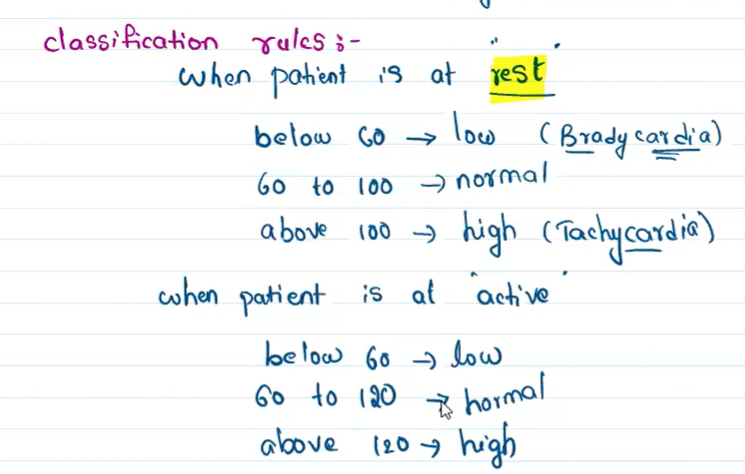 classification rules :-
when patient is at rest
below 60 → low (Bradycardia)
60 to 100 → normal
above 100 → high (Tachycardia)
when patient is at "active"
below 60 → low
60 to 120 → normal
above 120 → high